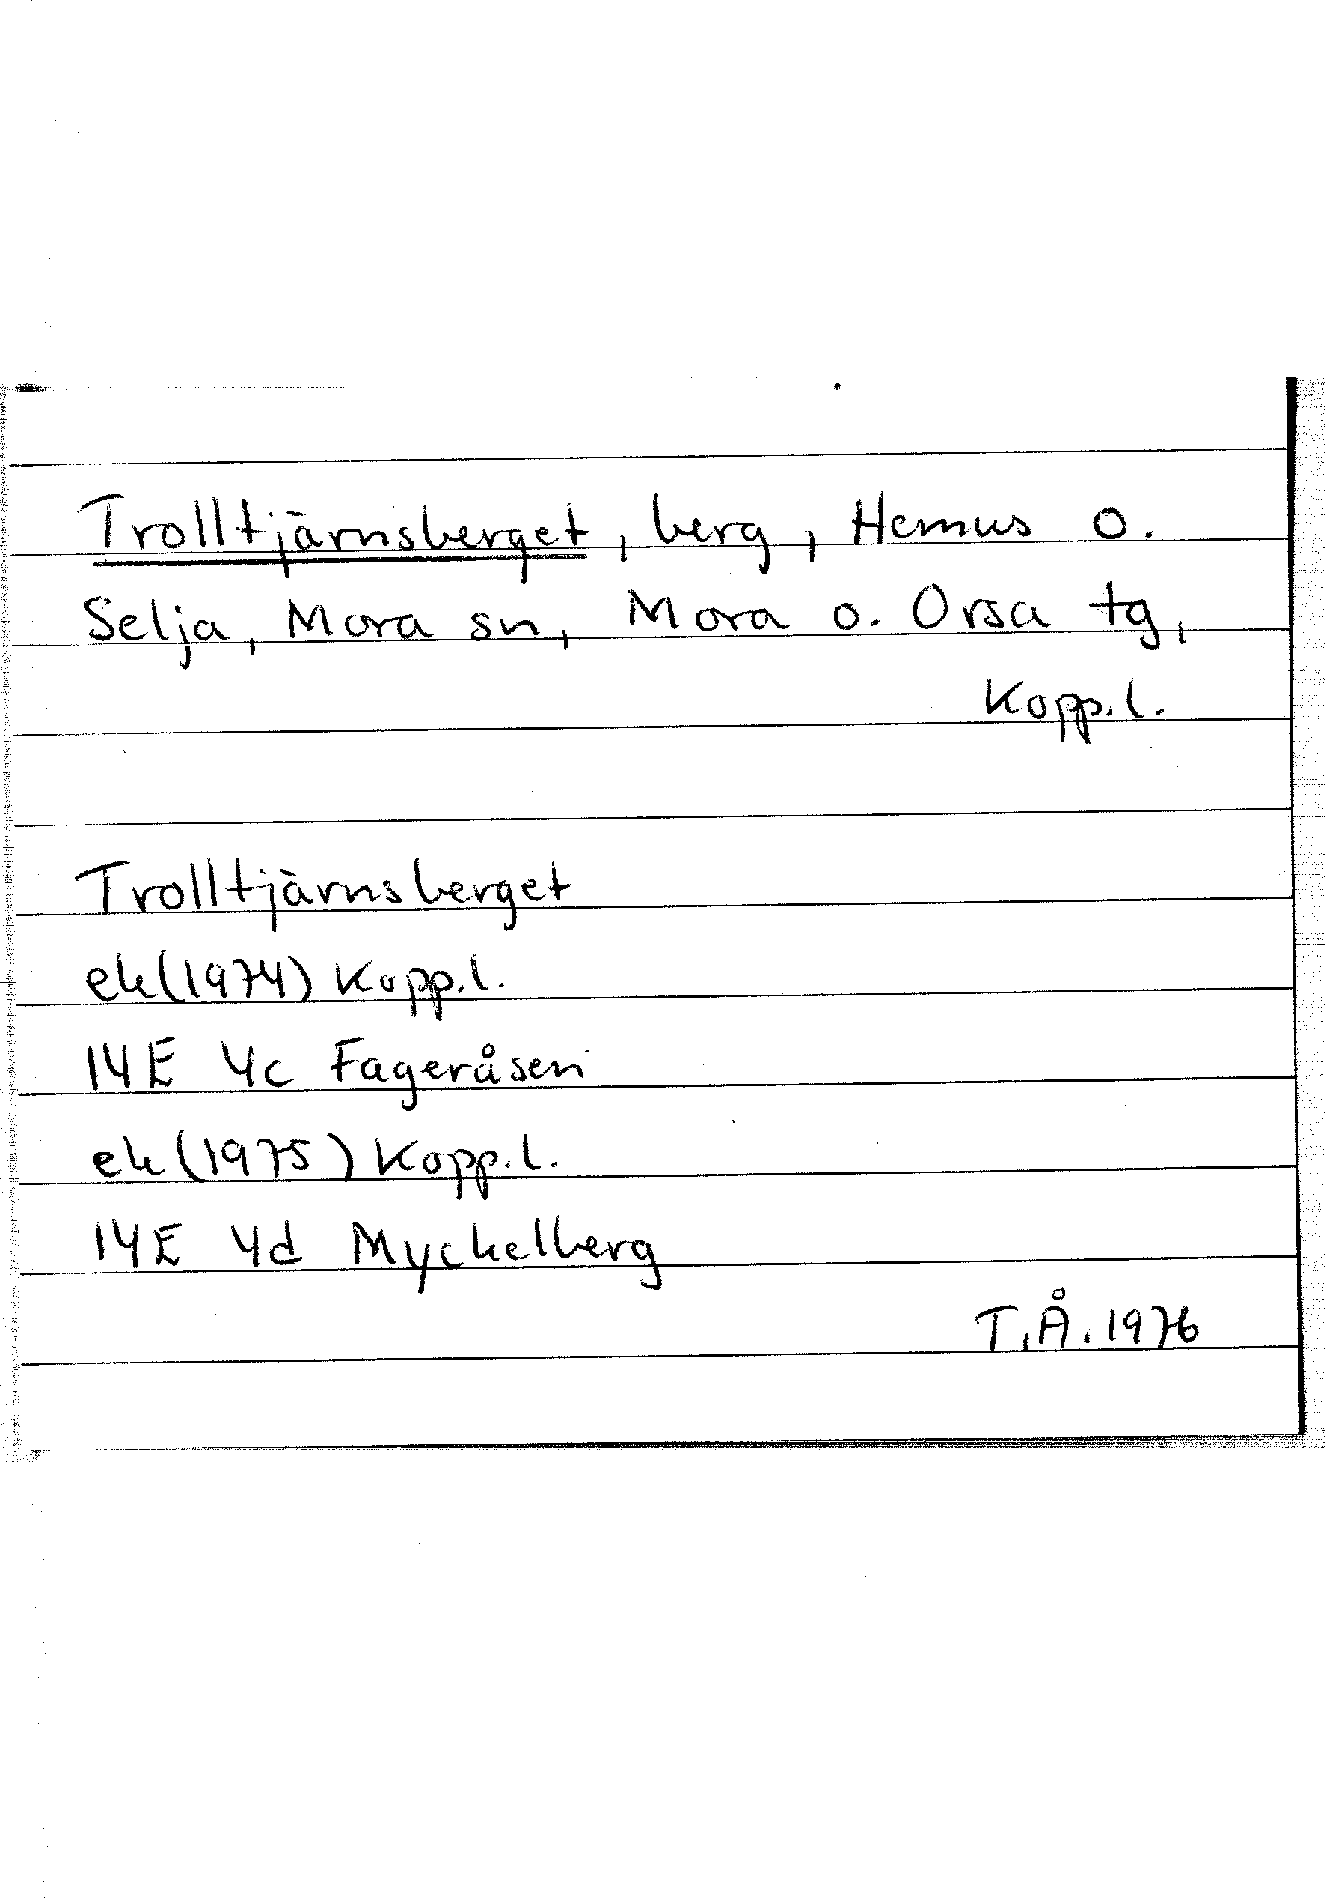 Trolltjärnsberget, berg, Hemus o.
Selja, Mora sn, Mora o. Orsa tg,
Kopp.l.
Trolltjärnsberget
ek(1974) Kopp.l.
14E 4c Fageråsen
ek(1975) Kopp.l.
14E 4d Myckelberg
T.Å.1976